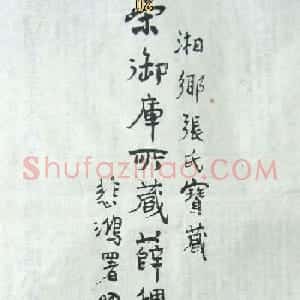 湘鄉張氏寶藏
御庫所藏薛稷
悲鴻署
Shufaziliao.com